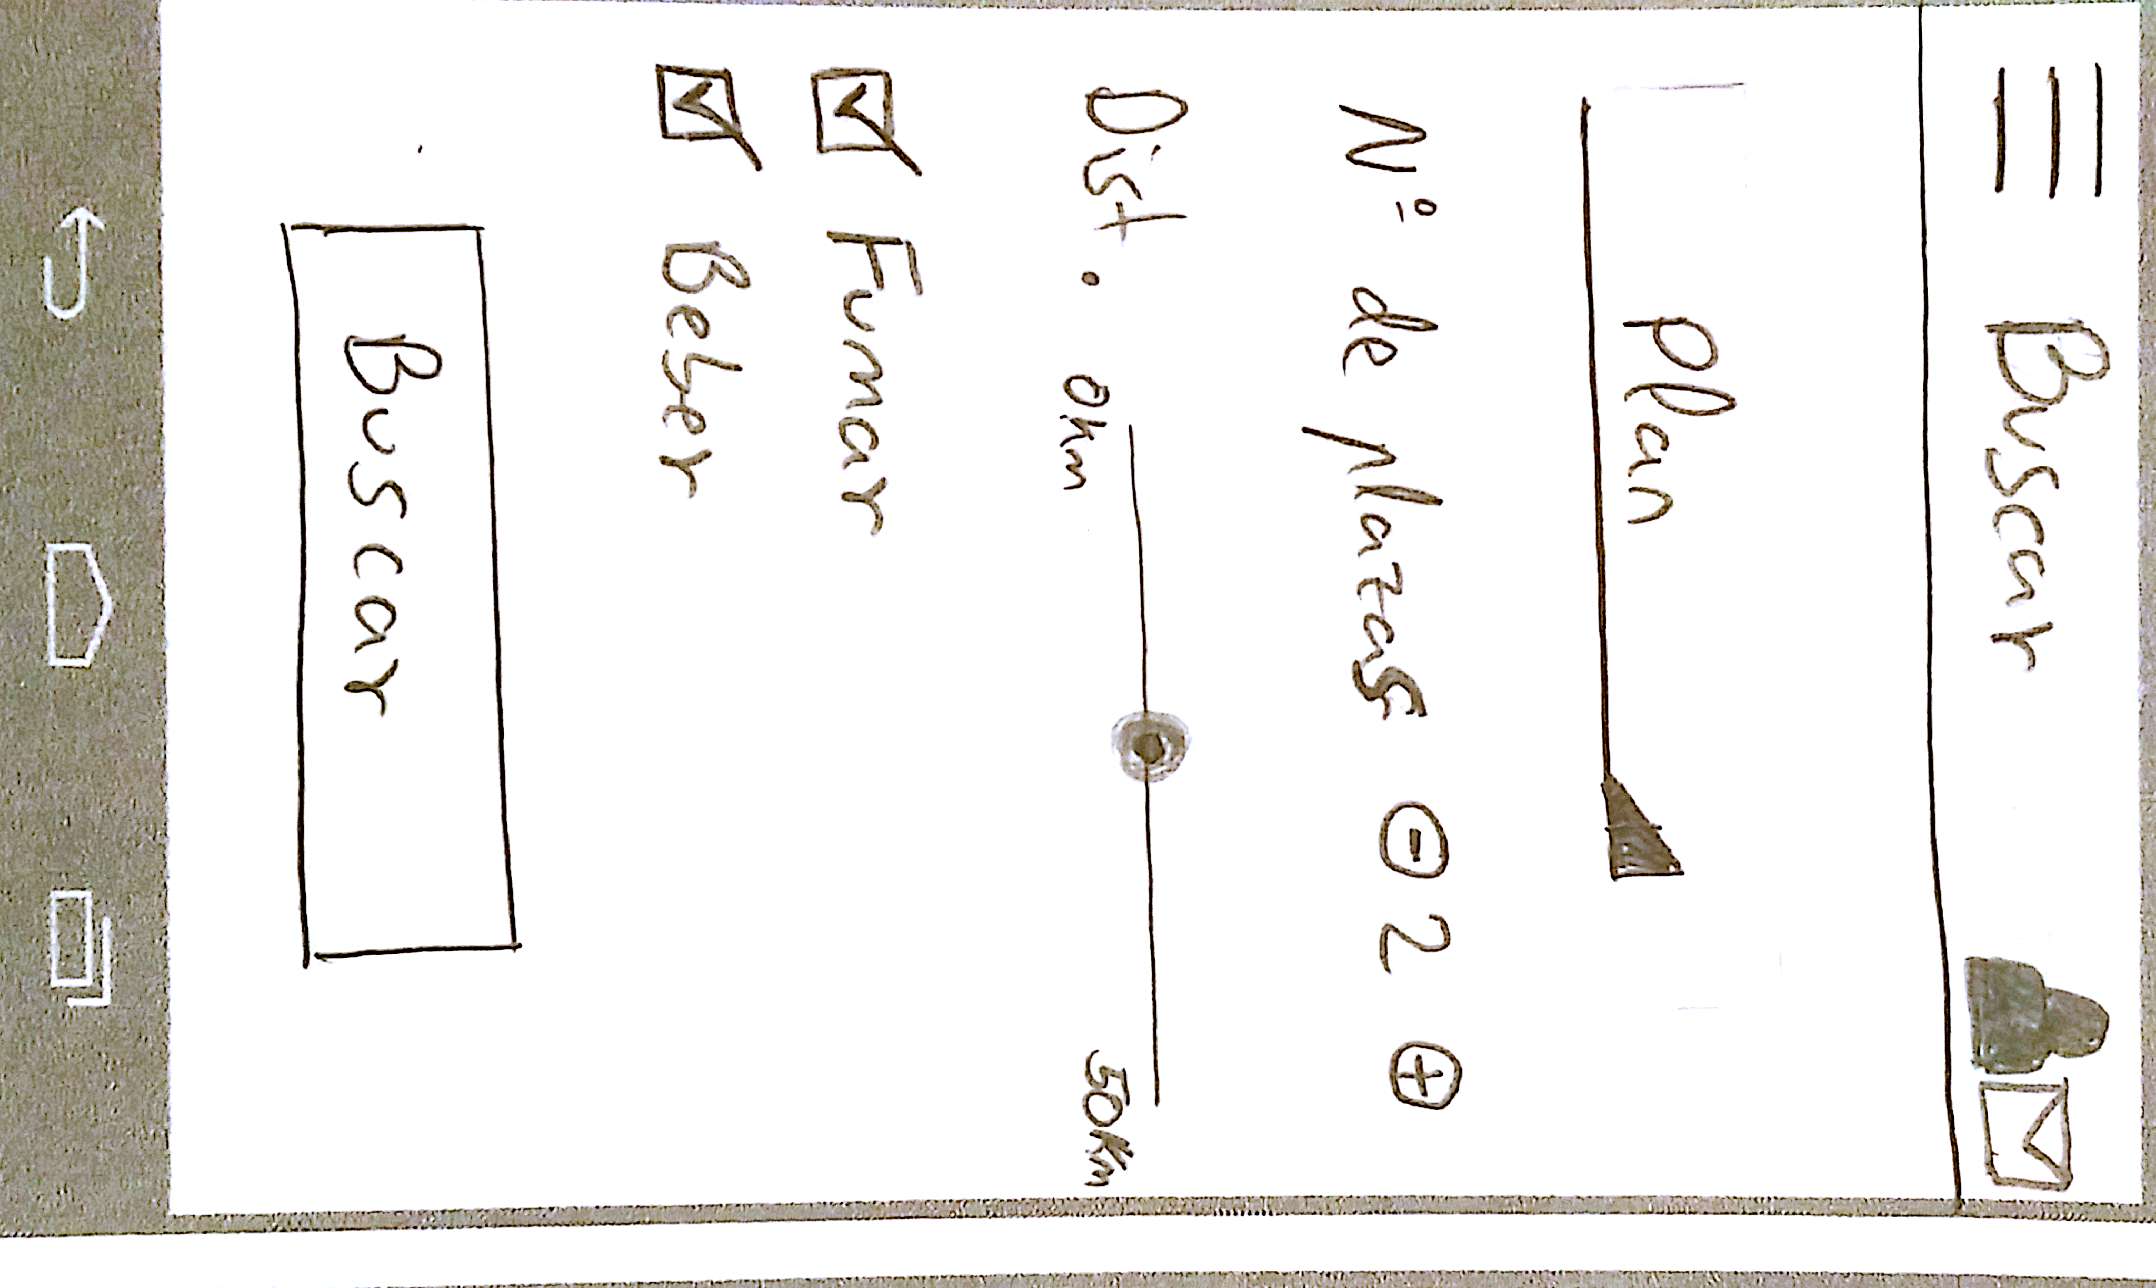 Buscar
Plan
Nº de plazas - 2 +
Dist. 0km 50Km
Fumar
Beber
Buscar